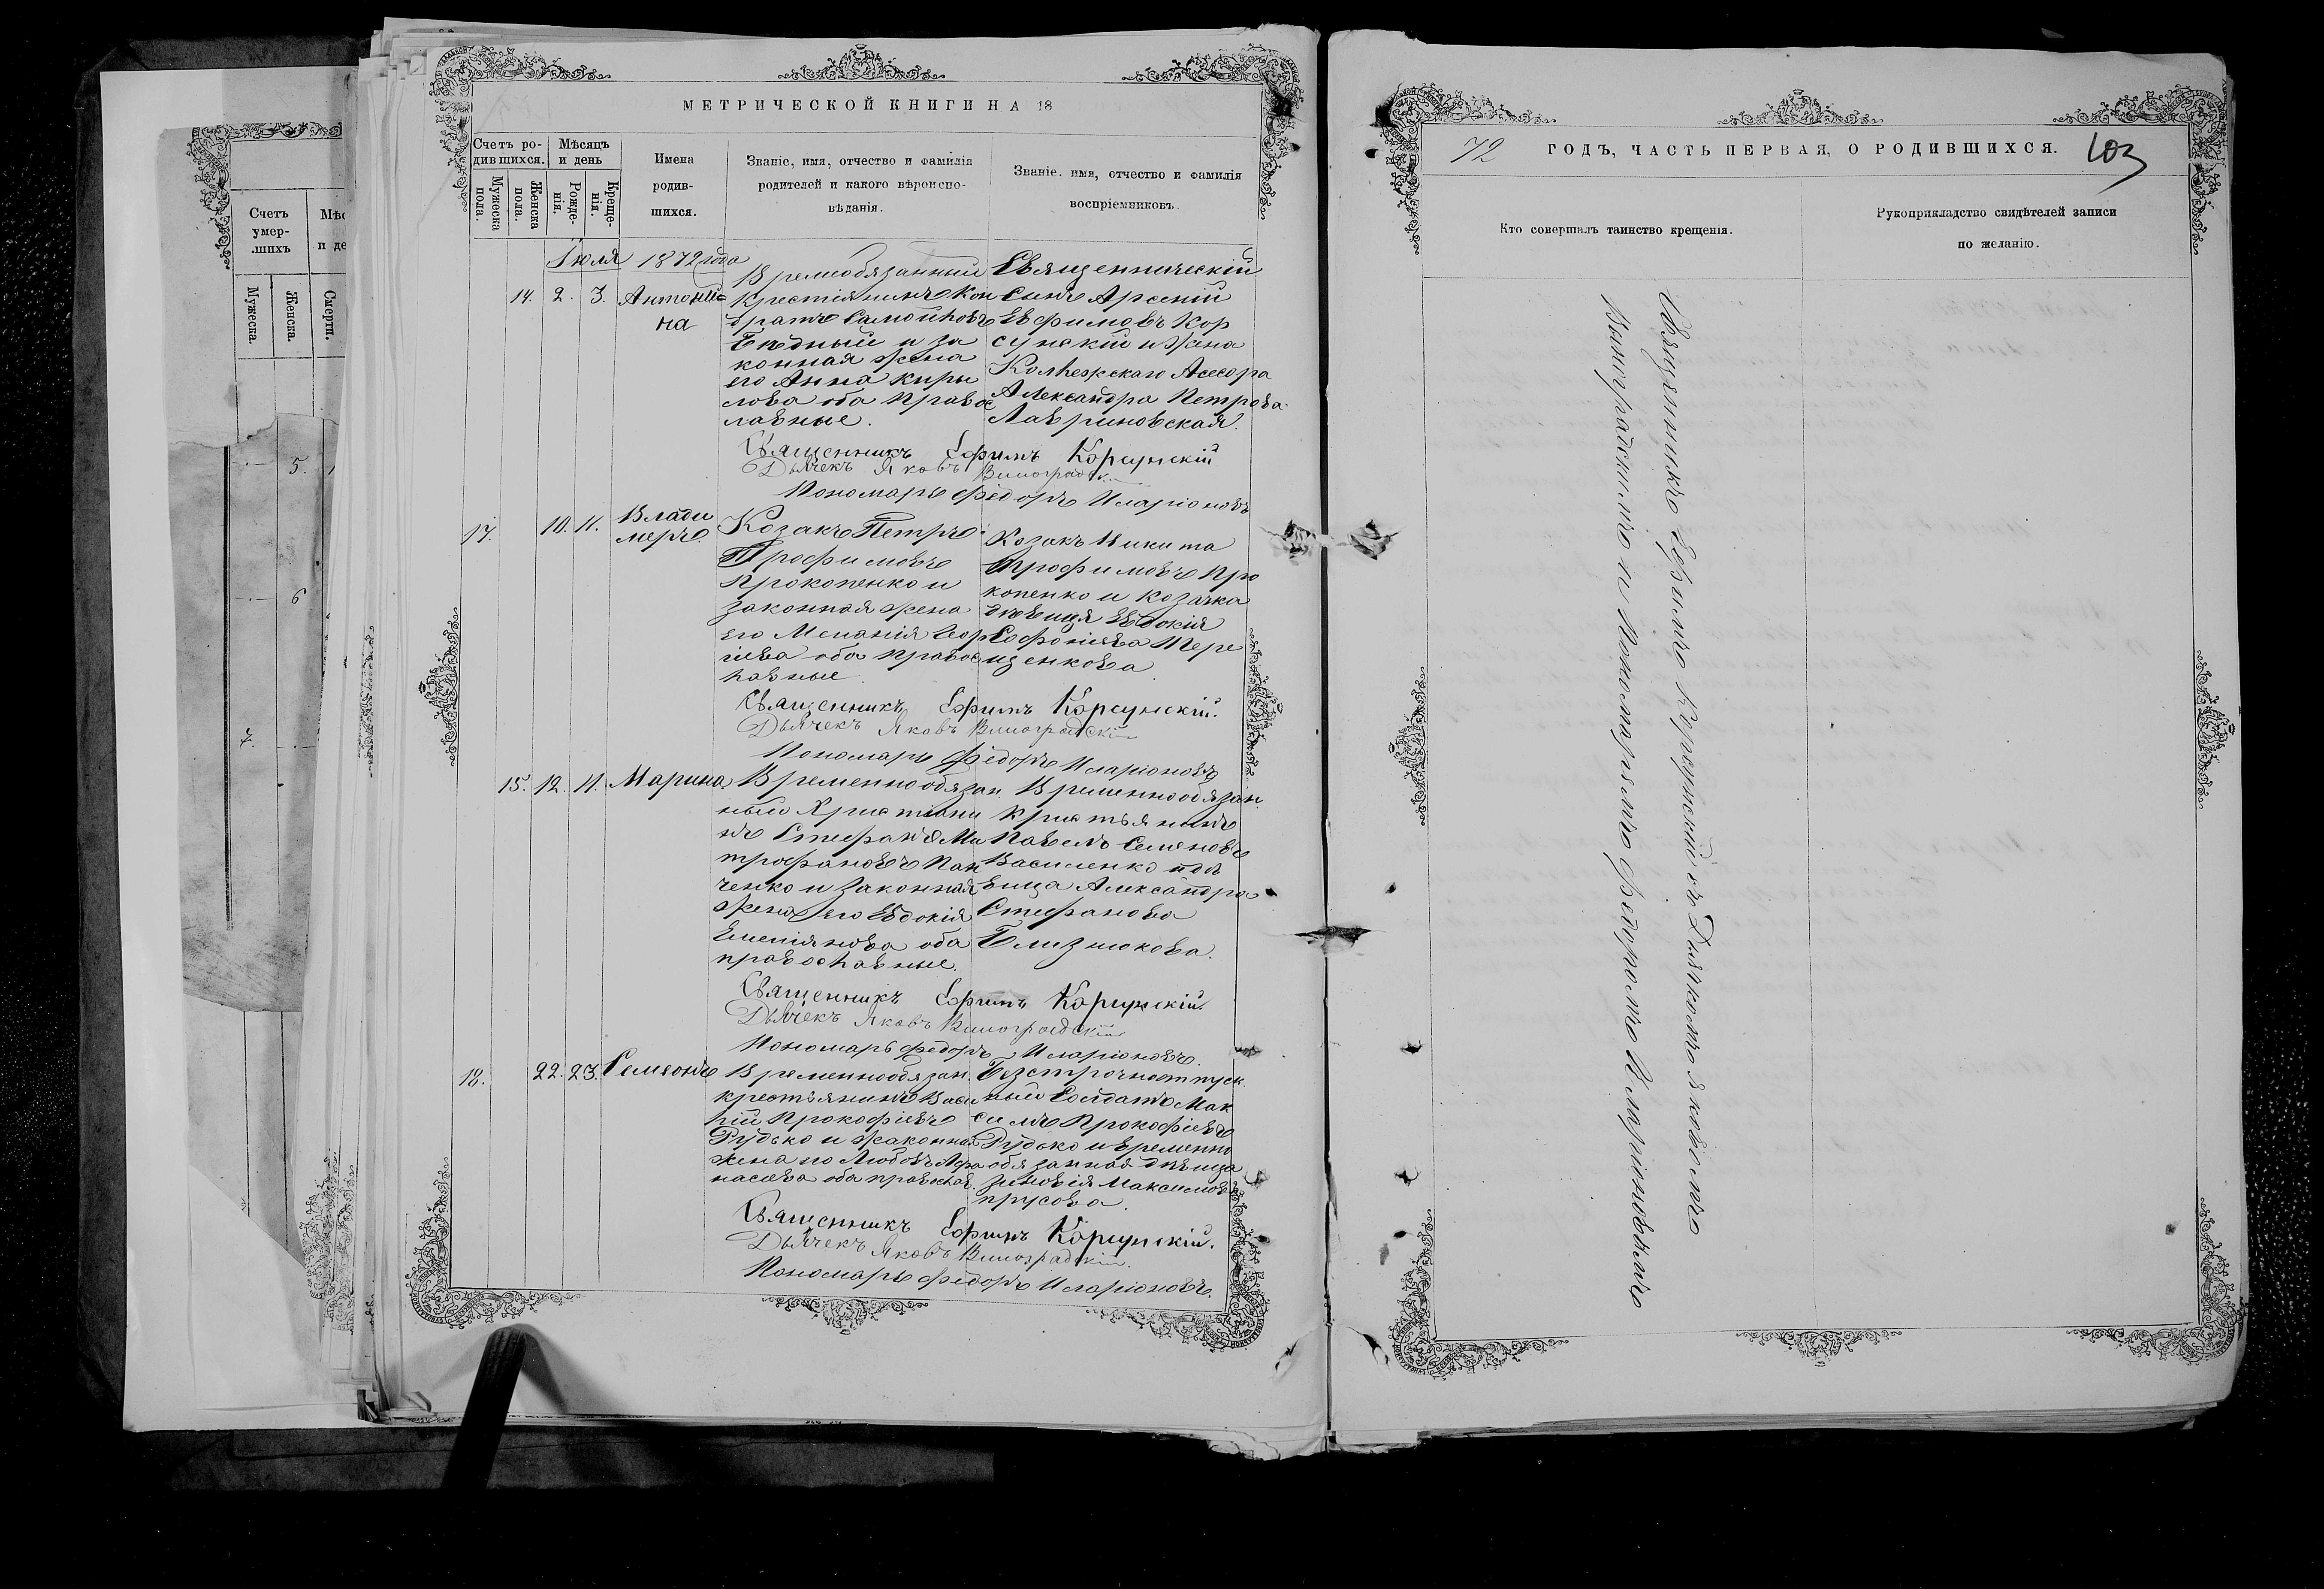 МЕТРИЧЕСКОЙ КНИГИ НА 18
Счетъ ро-
дившихся.
Мѣсяцъ
и день
Имена
родив-
шихся.
Званіе, имя, отчество и фамилія
родителей и какого вѣроиспо-
вѣданія.
Званіе, имя, отчество и фамилія
воспріемниковъ.
Мужеска
пола.
Женска
пола.
Рожде-
нія.
Креще-
нія.
Іюля 1872 года
14. 2. 3. Антони
на
Времнобязанный
крестіянинъ Кон
дратъ Самойловъ
Бѣдный и за
конная жена
его Анна Кири
лова оба правос
лавные.
Священническій
сынъ Арсеній
Ефимовъ Кор
сунскій и жена
Коллежскаго Асесора
Александра Петрова
Лавриновская.
Священникъ Ефимъ Корсунскій
Дьячекъ Яковъ Виноградскій
Пономарь Федоръ Иларіоновъ
17. 10. 11. Влади
меръ
Козакъ Петръ
Трофимовъ
Прокопенко и
законная жена
его Меланія Геор
гіева оба правос
лавные.
Козакъ Никита
Трофимовъ Про
копенко и козачка
дѣвица Евдокія
Софоніева Тере
щенкова
Священникъ Ефимъ Корсунскій.
Дьячекъ Яковъ Виноградскій
Пономарь Федоръ Иларіоновъ
15. 12. 11. Марина
Временнообязан
ный Христіани
нъ Стефанъ Ми
трофановъ Пан
ченко и законная
жена его Евдокія
Емеліянова оба
православные.
Временнообязан.
Кристьянинъ
Павелъ Семеновъ
Василенко и дѣ
вица Александра
Стефанова
Близнюкова.
Священникъ Ефимъ Корсунскій
Дьячекъ Яковъ Виноградскій
Пономарь Федоръ Иларіоновъ
18. 22. 23. Семеонъ
Временнообязан.
крестьянинъ Васи
лій Прокофіевъ
Рудько и законная
жена его Любовъ Афа
насіева оба православ.
Безсрочноотпуск
ный Солдатъ Мак
симъ Прокофіевъ
Рудько и временно
обязанная дѣвица
Зиновія Максимова
Прусова.
Священникъ Ефимъ Корсунскій.
Дьячекъ Яковъ Виноградскій.
Пономарь Федоръ Иларіоновъ.
72 ГОДЪ, ЧАСТЬ ПЕРВАЯ, О РОДИВШИХСЯ. 103
Кто совершалъ таинство крещенія.
Рукоприкладство свидѣтелей записи
по желанію.
Священникъ Ефимъ Корсунскій съ Дьячкомъ Яковомъ
Виноградскимъ и Пономаремъ Федоромъ Иларіоновымъ
Счетъ
умер-
шихъ
Мужеска.
Женска.
Смерти.
5.
6
7.